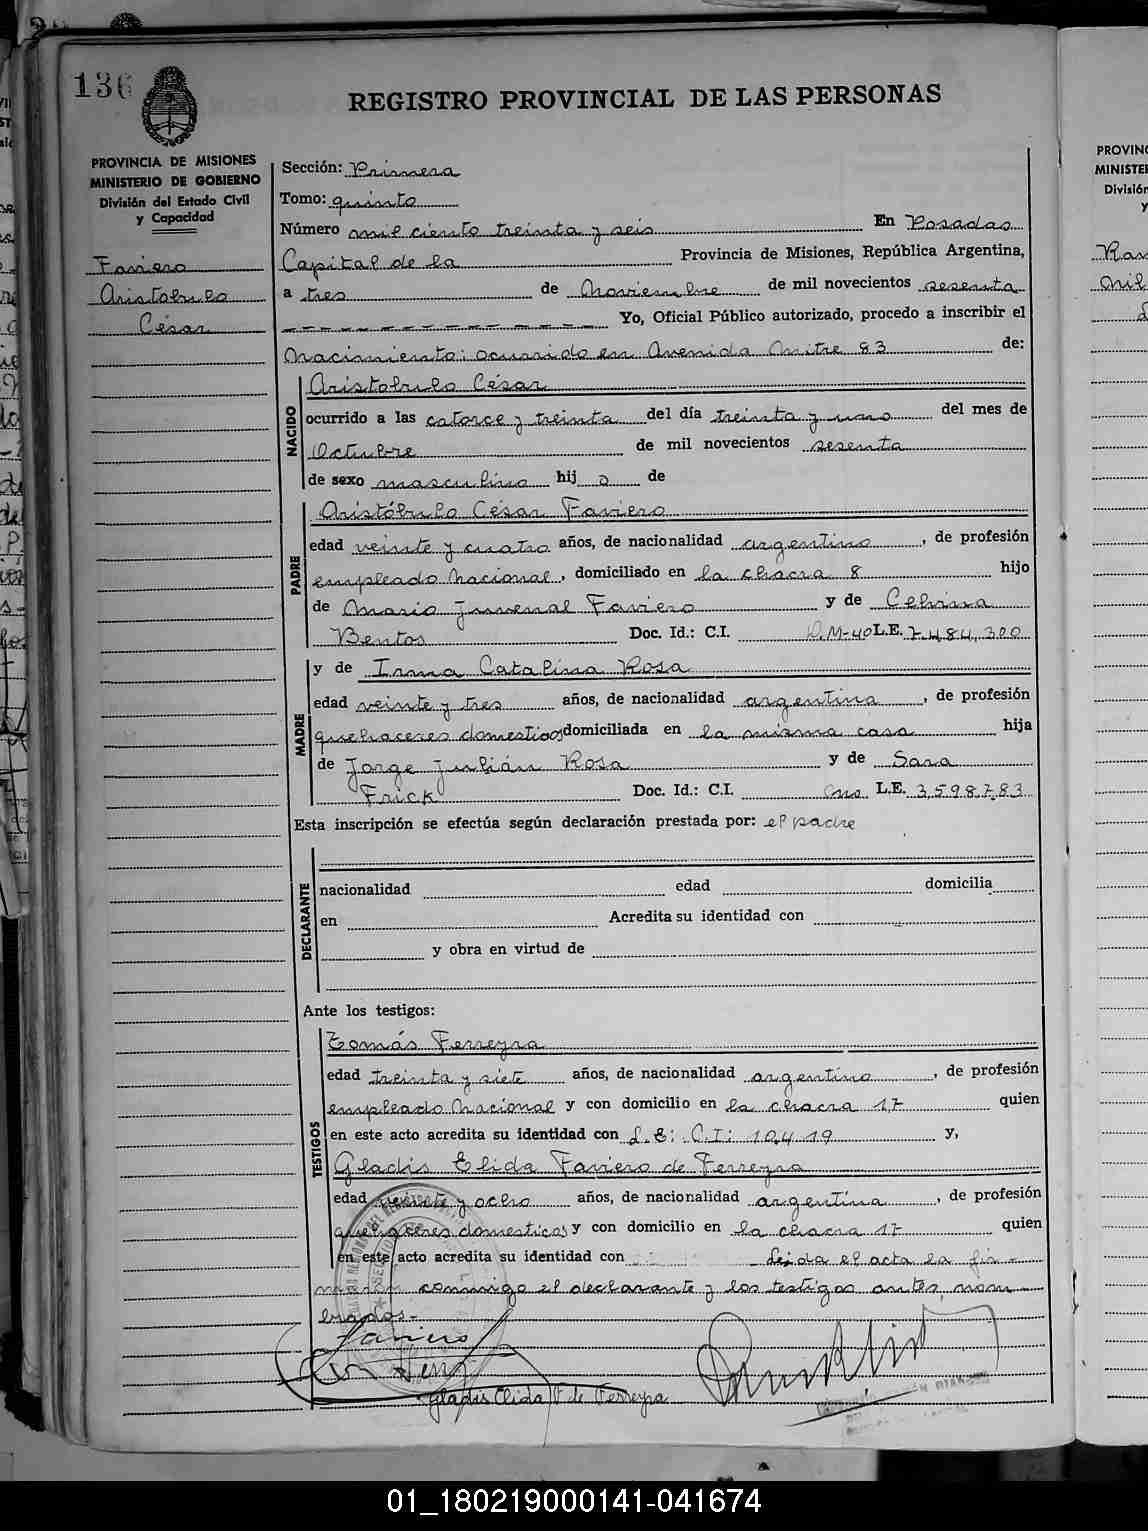 136
REGISTRO PROVINCIAL DE LAS PERSONAS
PROVINCIA DE MISIONES
MINISTERIO DE GOBIERNO
División del Estado Civil
y Capacidad
Faviero
Aristobulo
César
Sección: Primera
Tomo: quinto
Número mil ciento treinta y seis En Posadas
Capital de la Provincia de Misiones, República Argentina,
a tres de Noviembre de mil novecientos sesenta
Yo, Oficial Público autorizado, procedo a inscribir el
Nacimiento: ocurrido en Avenida Mitre 83 de:
NACIDO
Aristobulo César
ocurrido a las catorce y treinta del día treinta y uno del mes de
Octubre de mil novecientos sesenta
de sexo masculino hij o de
PADRE
Aristóbulo César Faviero
edad veinte y cuatro años, de nacionalidad argentino, de profesión
empleado Nacional, domiciliado en la chacra 8 hijo
de Mario Juvenal Faviero y de Celvina
Bentos Doc. Id.: C.I. D.M-40 L.E. 7.484.300
MADRE
y de Irma Catalina Rosa
edad veinte y tres años, de nacionalidad argentina, de profesión
quehaceres domesticos domiciliada en la misma casa hija
de Jorge Julián Rosa y de Sara
Frick Doc. Id.: C.I. Mns L.E. 3.598.783
Esta inscripción se efectúa según declaración prestada por: el padre
DECLARANTE
nacionalidad edad domicilia
en Acredita su identidad con
y obra en virtud de
Ante los testigos:
TESTIGOS
Tomás Ferreyra
edad treinta y siete años, de nacionalidad argentino, de profesión
empleado Nacional y con domicilio en la chacra 17 quien
en este acto acredita su identidad con L.E: C.I: 10419 y,
Gladis Elida Faviero de Ferreyra
edad veinte y ocho años, de nacionalidad argentina, de profesión
quehaceres domesticos y con domicilio en la chacra 17 quien
en este acto acredita su identidad con Leida el acta la fir-
maron conmigo el declarante y los testigos antes nom-
brados.-
Faviero
Gladis Elida F de Ferreyra
PROVINC
MINISTE
División
y
01_180219000141-041674